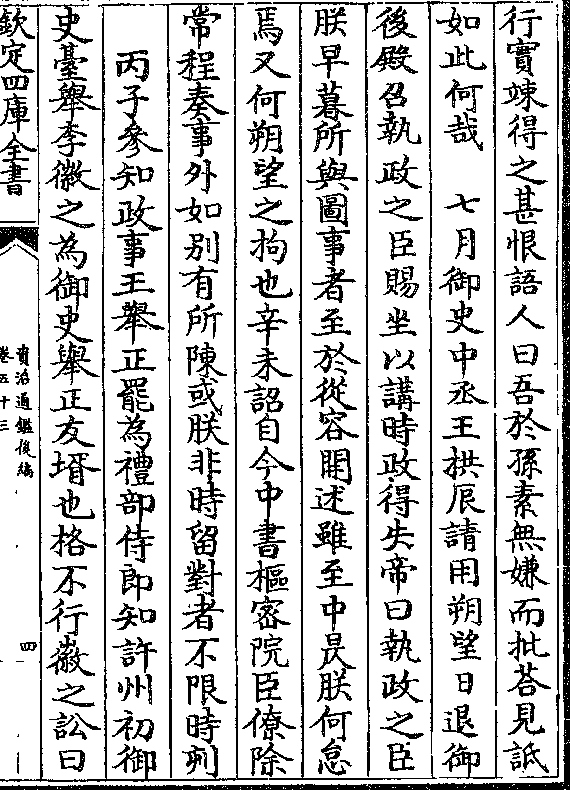 行實竦得之甚恨語人曰吾於孫素無嫌而批荅見詆
如此何哉　七月御史中丞王拱辰請用朔望日退御
後殿召執政之臣賜坐以講時政得失帝曰執政之臣
朕早暮所與圖事者至於從容開述雖至中昃朕何怠
焉又何朔望之拘也辛未詔自今中書樞密院臣僚除
常程奏事外如別有所陳或朕非時留對者不限時刻
丙子參知政事王舉正罷為禮部侍郎知許州初御
史臺舉李徽之為御史舉正友壻也格不行徽之訟曰
欽定四庫全書
資治通鑑後編
卷五十三
四